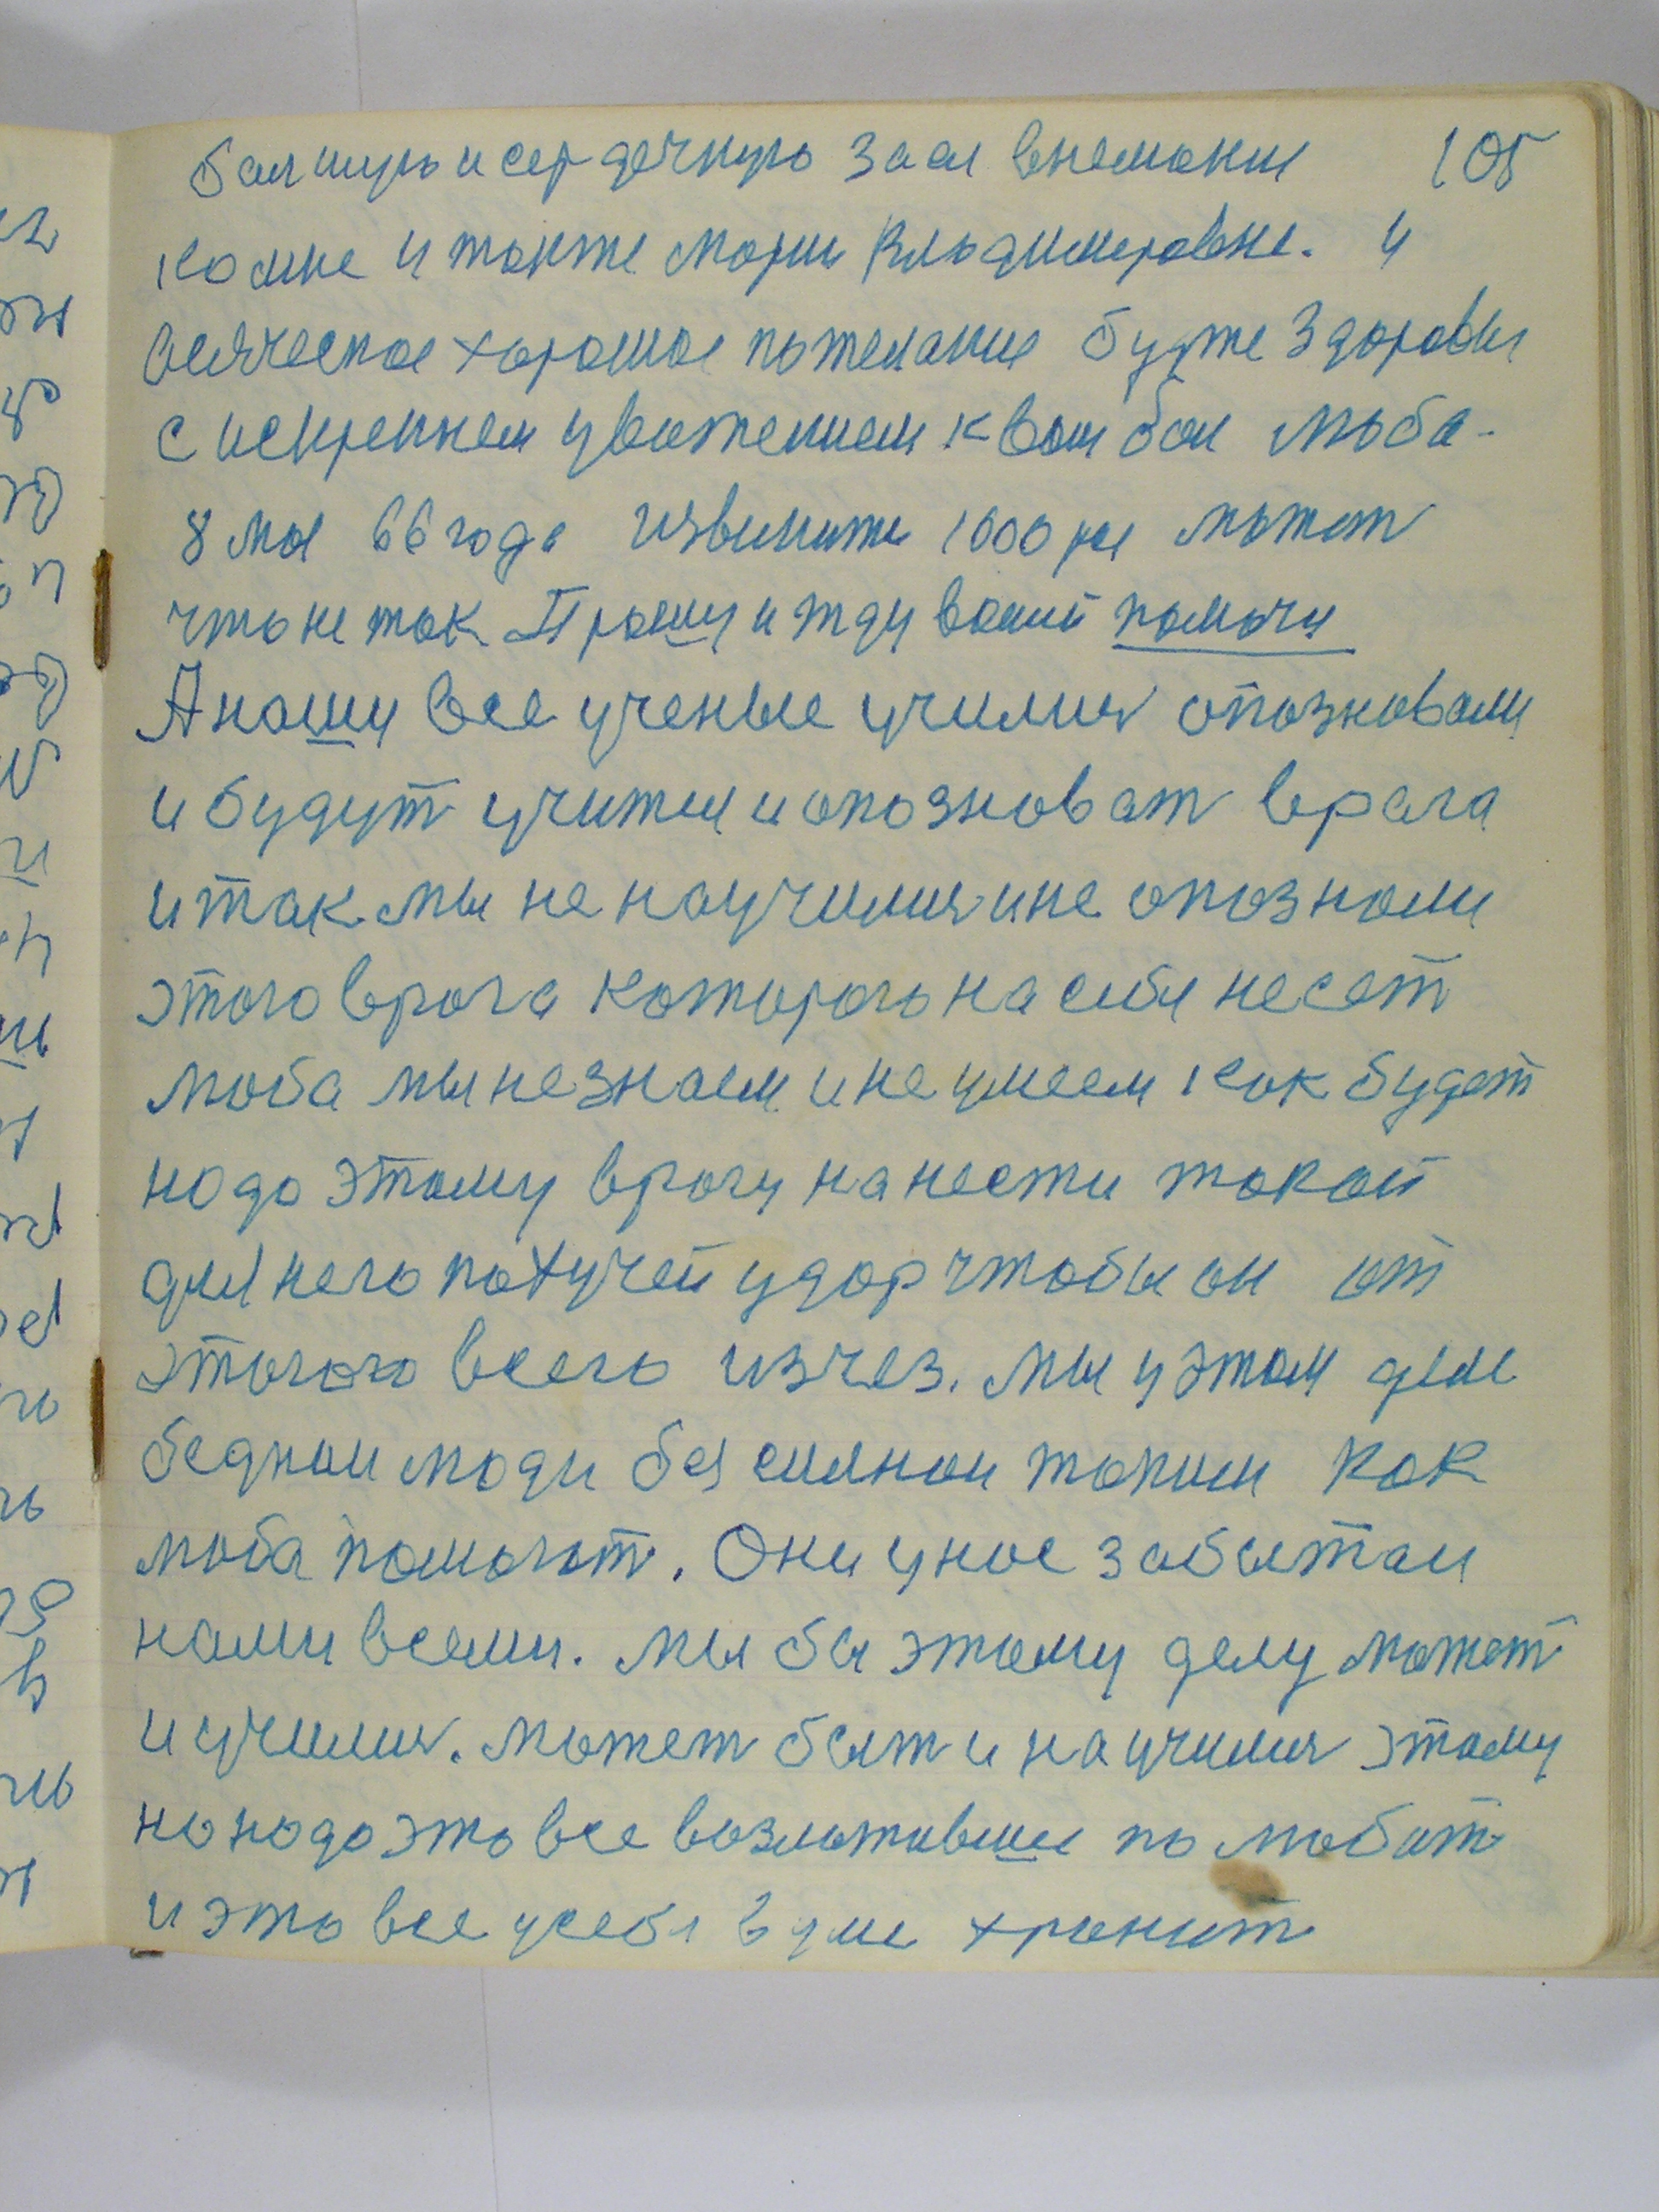 балшую и сердечную заал внемание 105
ко мне и также Марии Владимеровне. и
всяческое хорошое пожелание будте здоровы
с искреннем уважением к вам бал люба.
8 мая 66 года извените 1000 ра может
что не так Прошу и жду вашей помочи
А наши все ученые училися опазновали
и будут учится и опозноват врага
и так мы не научилися и не опознали
этого врага которого на себя несет
люба мы не знаем и не умеем как будет
надо этому врагу нанести такой
для него пахучей удар чтобы он от
этогого всего изчез. мы у этом деле
беднаи люди бессилнаи таким как
люба помогат. Они у нас забытаи
нами всеми. мы бы этому делу может
и училися. может быт и научился этому
но надо это все возлюбивши по любит
и это все у себя в уме хранит